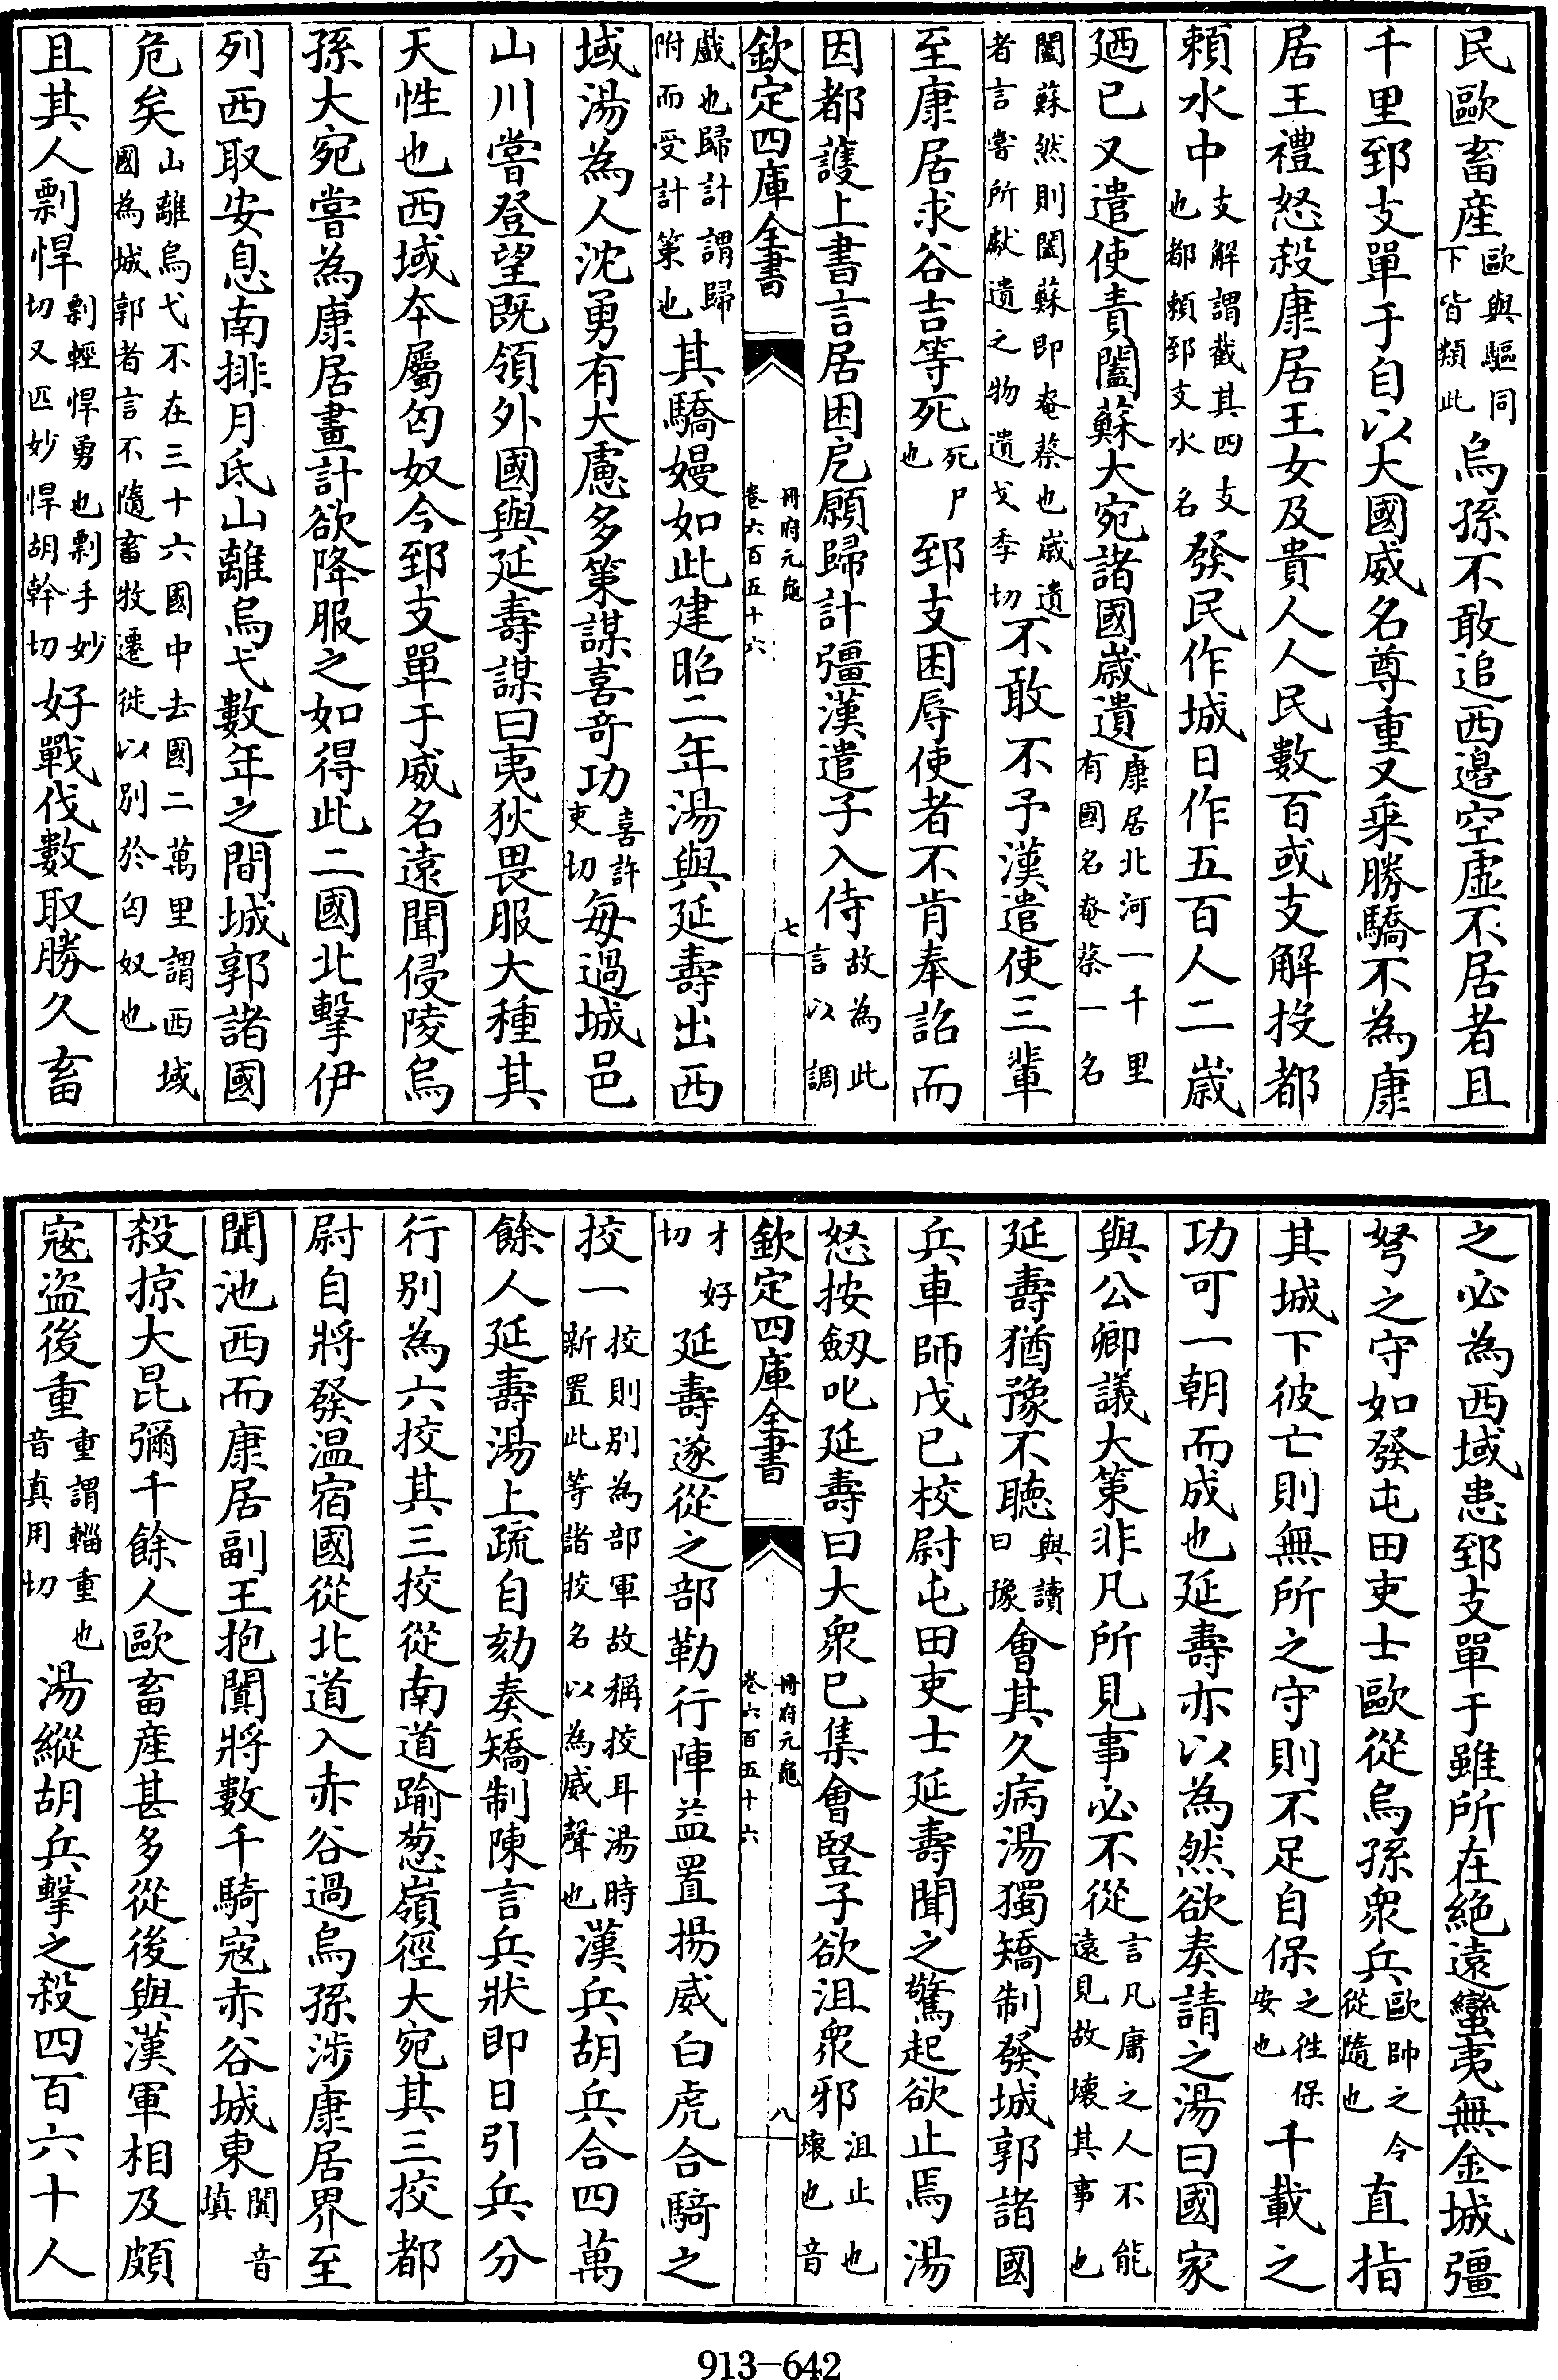 民歐畜産歐與驅同下皆類此烏孫不敢追西邊空虛不居者且
千里郅支單于自以大國威名尊重又乘勝驕不為康
居王禮怒殺康居王女及貴人人民數百或支解投都
賴水中支解謂截其四支也都賴郅支水名發民作城日作五百人二歲
廼已又遣使責闔蘇大宛諸國歲遺康居北河一千里有國名奄蔡一名
闔蘇然則闔蘇即奄蔡也歲遺者言嘗所獻遺之物遺戈季切不敢不予漢遣使三輩
至康居求谷吉等死死尸也郅支困辱使者不肯奉詔而
因都護上書言居困戹願歸計彊漢遣子入侍故為此言以調
欽定四庫全書
冊府元龜
卷六百五十六
七
戲也歸計謂歸附而受計策也其驕嫚如此建昭二年湯與延壽出西
域湯為人沈勇有大慮多策謀喜竒功喜許吏切每過城邑
山川嘗登望既領外國與延壽謀曰夷狄畏服大種其
天性也西域本屬匈奴今郅支單于威名遠聞侵陵烏
孫大宛嘗為康居畫計欲降服之如得此二國北擊伊
列西取安息南排月氐山離烏弋數年之間城郭諸國
危矣山離烏弋不在三十六國中去國二萬里謂西域國為城郭者言不隨畜牧遷徙以別於匈奴也
且其人剽悍剽輕悍勇也剽手妙切又匹妙悍胡幹切好戰伐數取勝久畜
之必為西域患郅支單于雖所在絶遠蠻夷無金城彊
弩之守如發屯田吏士歐從烏孫衆兵歐帥之令從隨也直指
其城下彼亡則無所之守則不足自保之徃保安也千載之
功可一朝而成也延壽亦以為然欲奏請之湯曰國家
與公卿議大策非凡所見事必不從言凡庸之人不能遠見故壞其事也
延壽猶豫不聽與讀曰豫會其久病湯獨矯制發城郭諸國
兵車師戊已校尉屯田吏士延壽聞之驚起欲止焉湯
怒按劔叱延壽曰大衆已集會豎子欲沮衆邪沮止也壞也音
欽定四庫全書
冊府元龜
卷六百五十六
八
才好切延壽遂從之部勒行陣益置揚威白虎合騎之
挍一挍則別為部軍故稱挍耳湯時新置此等諸挍名以為威聲也漢兵胡兵合四萬
餘人延壽湯上疏自劾奏矯制陳言兵狀即日引兵分
行別為六挍其三挍從南道踰葱嶺徑大宛其三挍都
尉自將發温宿國從北道入赤谷過烏孫涉康居界至
闐池西而康居副王抱闐將數千騎寇赤谷城東闐音填
殺掠大昆彌千餘人歐畜産甚多從後與漢軍相及頗
寇盗後重重謂輜重也音真用切湯縱胡兵擊之殺四百六十人
913-642